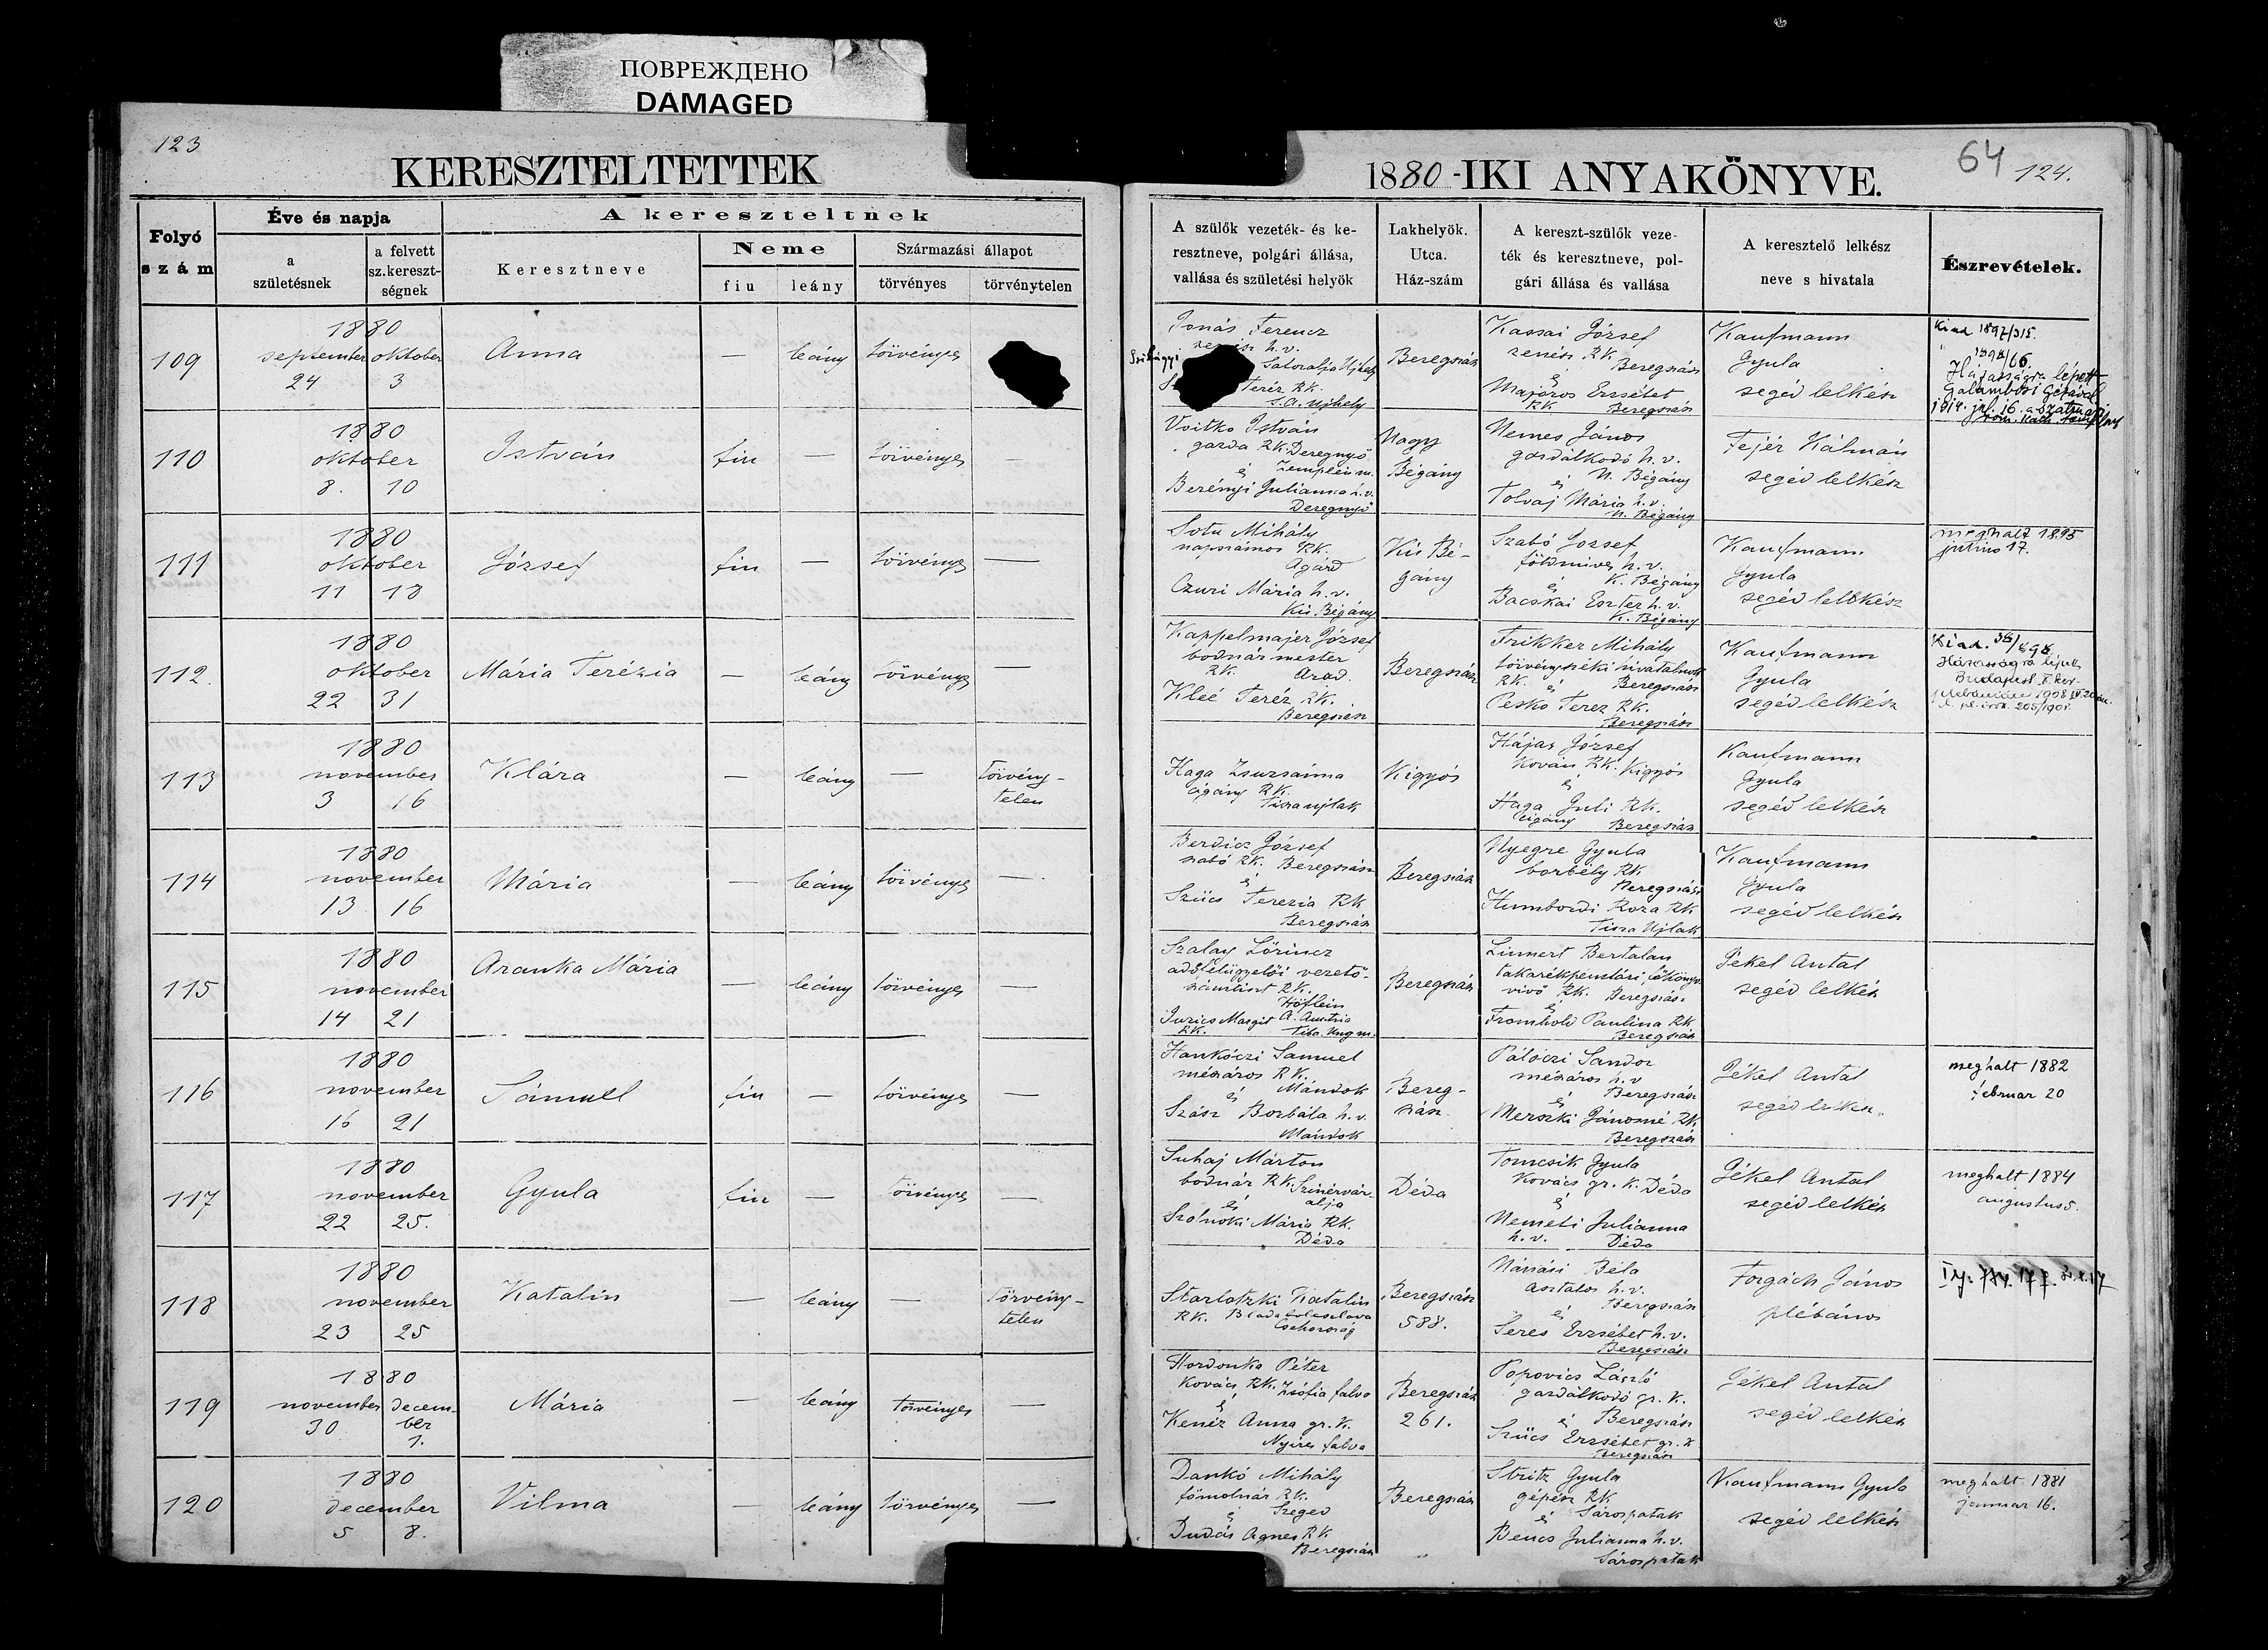 ПОВРЕЖДЕНО
DAMAGED
123
KERESZTELTETTEK
Folyó
szám
Éve és napja
a
születésnek
a felvett
sz.kereszt-
ségnek
A kereszteltnek
Keresztneve
Neme
fiu
leány
Származási állapot
törvényes
törvénytelen
1880-IKI ANYAKÖNYVE.
64
124.
A szülők vezeték- és ke-
resztneve, polgári állása,
vallása és születési helyök
Lakhelyök.
Utca.
Ház-szám
A kereszt-szülők veze-
ték és keresztneve, pol-
gári állása és vallása
A keresztelő lelkész
neve s hivatala
Észrevételek.
109
1880
september október
24 3
Anna
—
leány
törvényes
Jonás Ferencz
h.v.
Sátoralja Ujhely
Teréz RK.
S.a. Ujhely
Beregszász
Kassai József
zenész RK
Beregszász
é
Majoros Erzsébet
RK Beregszász
Kaufmann
Gyula
segéd lelkész
Kiad 1897/315.
" 1898/66.
Házasságra lépett
Galambosi Gézával
1914. jul. 16. a szatmári
róm. kath. templomban
110
1880
október
8. 10
István
fiu
—
törvényes
—
Voitko István
gazda RK. Deregnyő
é Zemplén m.
Berényi Julianna h.v.
Deregnyő
Nagy
Bégány
Nemes János
gazdálkodó h.v.
é N. Bégány
Tolvaj Mária h.v.
N. Bégány
Fejér Kálmán
segéd lelkész
111
1880
október
11 13
József
fiu
—
törvényes
—
Sotu Mihály
napszámos RK.
Agárd
Czuri Mária h.v.
Kis Bégány
Kis Bé-
gány
Szabó József
földmives h.v.
é K. Bégány
Bacskai Eszter h.v.
K. Bégány
Kaufmann
Gyula
segéd lelkész
meghalt 1895
junius 17.
112
1880
október
22 31
Mária Terézia
—
leány
törvényes
—
Kappelmajer József
bodnár mester
RK. Arad.
Kleé Teréz RK.
Beregszász
Beregszász
Frikker Mihály
törvényszéki hivatalnok
RK. é Beregszász
Pesko Teréz RK.
Beregszász
Kaufmann
Gyula
segéd lelkész
Kiad. 36/898
Házasságra lépett
Budapest
113
1880
november
3 16
Klára
—
leány
—
törvény-
telen
Haga Zsuzsánna
cigány RK.
Tisza ujlak
Kigyós
Hájas József
Kovács RK. Kigyós
é
Haga Juli RK.
cigány Beregszász
Kaufmann
Gyula
segéd lelkész
114
1880
november
13 16
Mária
—
leány
törvényes
—
Berdicz József
szabó RK. Beregszász
é
Szücs Terezia RK
Beregszász
Beregszász
Nyegre Gyula
borbély RK
Beregszász
Humbordi Roza RK
Tisza Ujlak
Kaufmann
Gyula
segéd lelkész
115
1880
november
14 21
Aranka Mária
—
leány
törvényes
—
Szalay Lőrincz
adófelügyelői vezető-
számtiszt RK.
Höflein
Jurics Margit A. Austria
RK. Tiba. Ung m.
Beregszász
Linnert Bertalan
takarékpénztári főkönyv-
vivő RK. Beregszász
é
Fromhold Paulina RK
Beregszász
Jékel Antal
segéd lelkész
116
1880
november
16 21
Sámuel
fiu
—
törvényes
—
Hankóczi Samuel
mészáros RK.
é Mándok
Szász Borbála h.v.
Mándok
Bereg-
szász
Pálóczi Sandor
mészáros h.v
é Beregszász
Merszki Jánosné RK.
Beregszász
Jékel Antal
segéd lelkész
meghalt 1882
február 20
117
1880
november
22 25.
Gyula
fiu
—
törvényes
—
Suhaj Márton
bodnár RK. Szinérvár-
és alja
Szolnoki Mária RK.
Déda
Déda
Tomcsik Gyula
Kovács gr. K. Déda
é
Nemeti Julianna
h.v. Déda
Jékel Antal
segéd lelkész
meghalt 1884
augustus 5.
118
1880
november
23 25
Katalin
—
leány
—
törvény-
telen
Starlotzki Katalin
RK.
Csehország
Beregszász
588.
Nánási Béla
asztalos h.v.
é Beregszász
Seres Erzsébet h.v.
Beregszász
Forgách János
plébános
119
1880
november decem-
30 ber
1.
Mária
—
leány
törvényes
—
Hordonka Péter
Kovács RK. Zsófia falva
é
Kenéz Anna gr. K.
Nyires falva
Beregszász
261.
Popovics László
gazdálkodó gr. K.
é Beregszász
Szücs Erzsébet gr. K
Beregszász
Jékel Antal
segéd lelkész
120
1880
december
5 8.
Vilma
—
leány
törvényes
—
Dankó Mihály
főmolnár RK.
é Szeged
Dudás Agnes RK
Beregszász
Beregszász
Stritz Gyula
gépész RK
é Sárospatak
Bencs Julianna h.v.
Sárospatak
Kaufmann Gyula
segéd lelkész
meghalt 1881
januar 16.